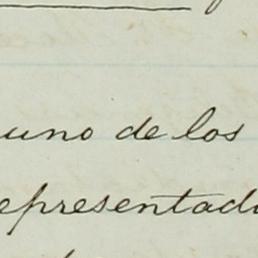 uno de los
epresentad